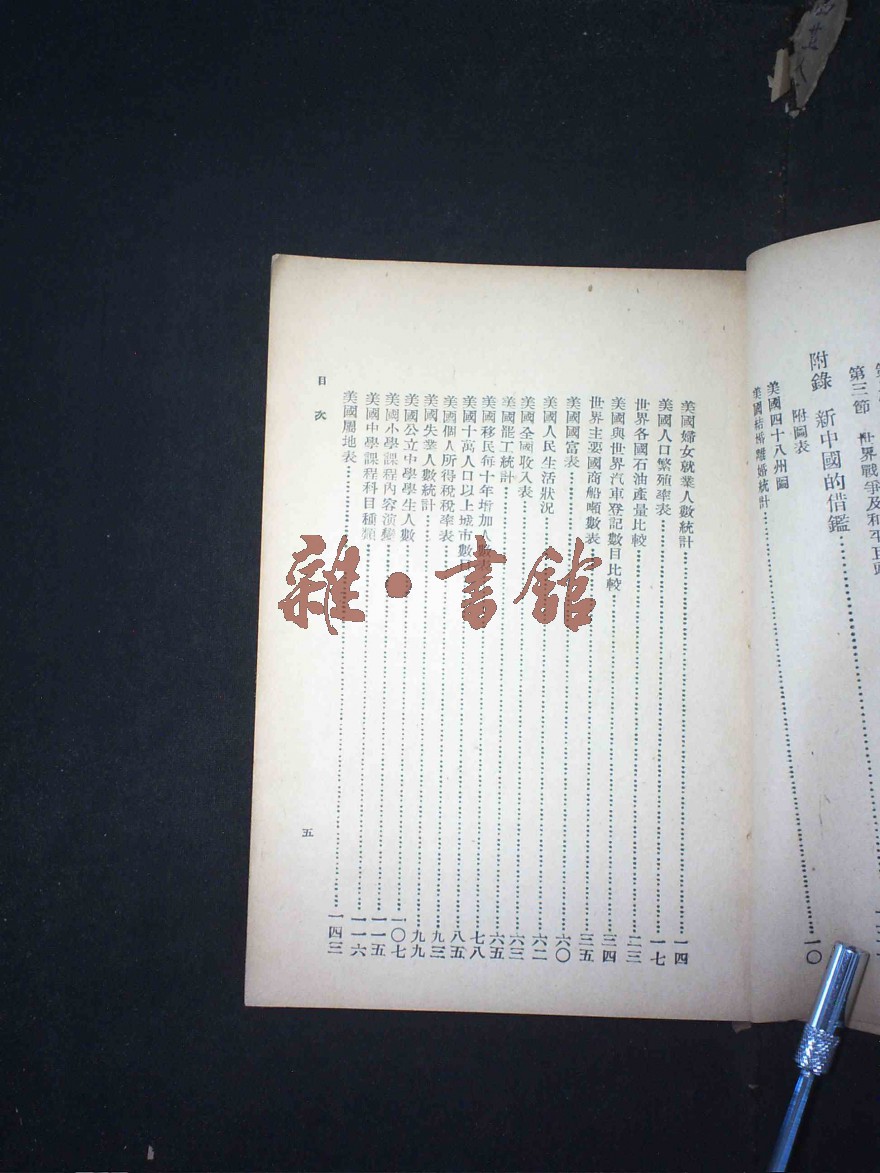 第三節 世界戰爭及和平
附錄 新中國的借鑑……………………一〇
附圖表
美國四十八州圖
美國結婚離婚統計
美國婦女就業人數統計……………………一四
美國人口繁殖率表……………………一七
世界各國石油產量比較……………………二三
美國與世界汽車登記數目比較……………………三四
世界主要國商船噸數表……………………三五
美國國富表……………………六〇
美國人民生活狀況……………………六二
美國全國收入表……………………六三
美國罷工統計……………………六五
美國移民每十年增加人數……………………七八
美國十萬人口以上城市數……………………八五
美國個人所得稅稅率表……………………九三
美國失業人數統計……………………九九
美國公立中學學生人數……………………一〇七
美國小學課程內容演變……………………一一五
美國中學課程科目種類……………………一一六
美國屬地表……………………一四三
目次
五
雜·書館